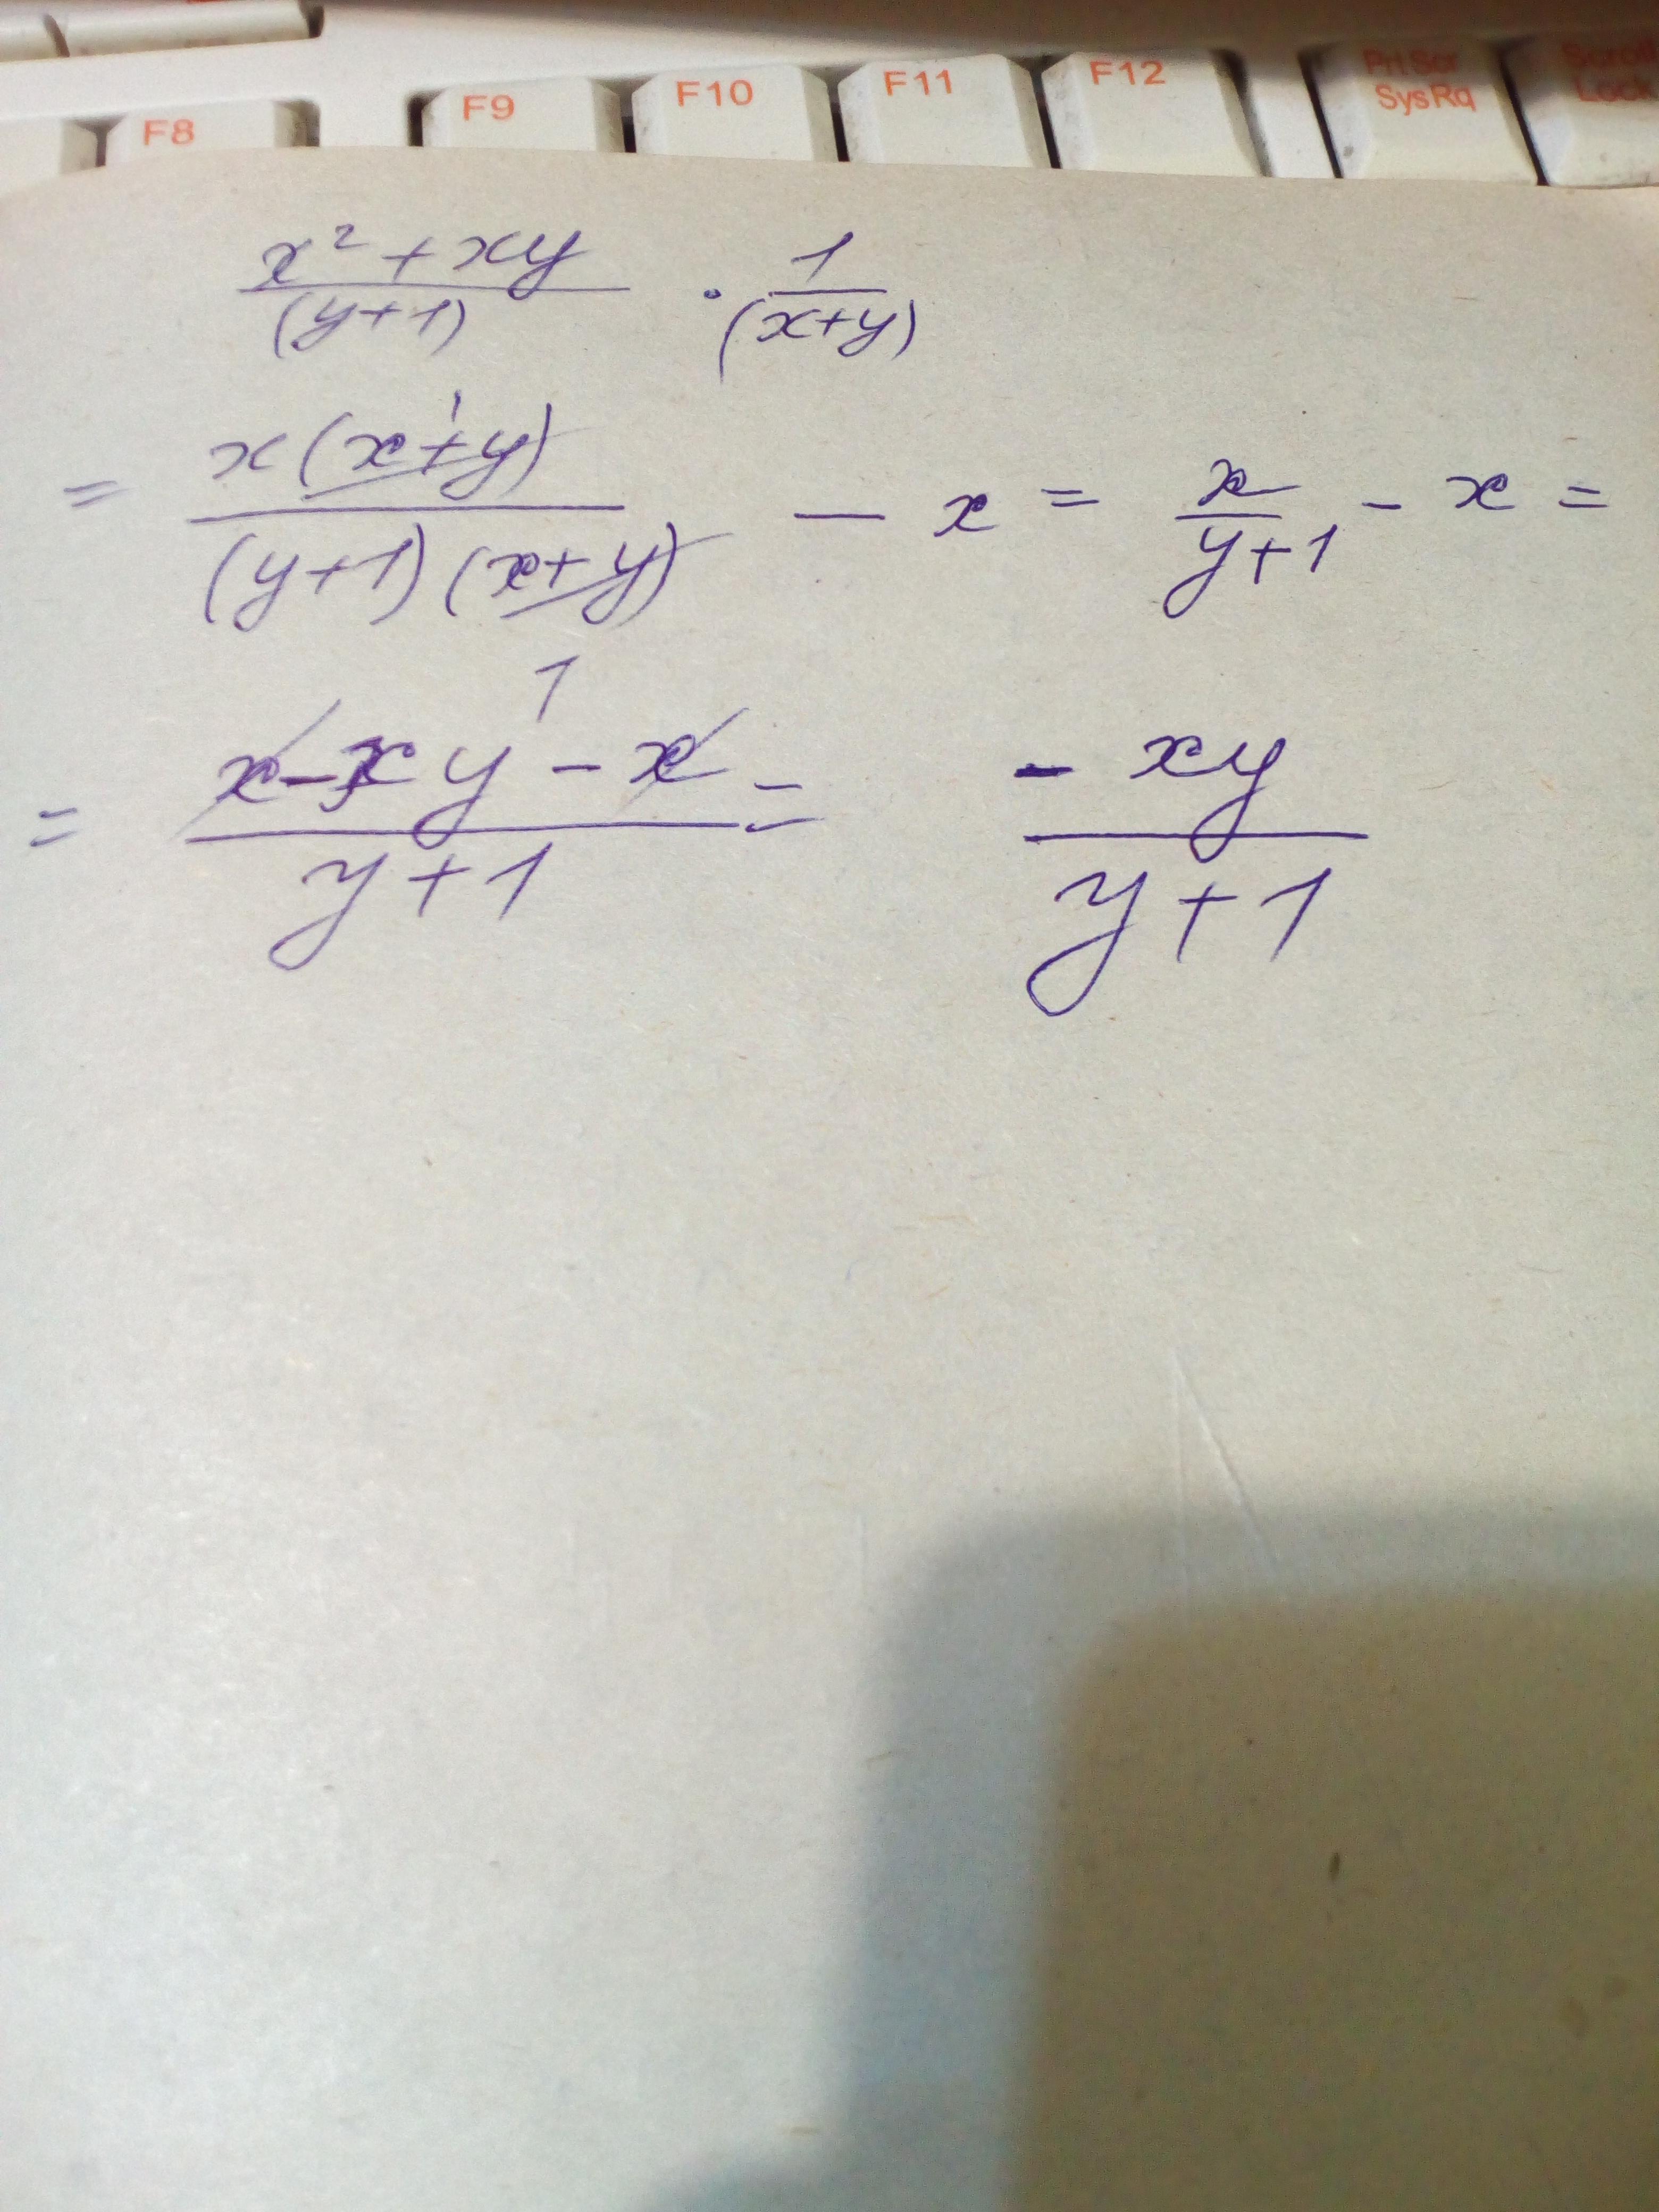 F8 F9 F10 F11 F12 PrtScr SysRq Scroll Lock
x² + xy / (y+1) · 1 / (x+y)
= x(x+y) 1 / (y+1)(x+y) 1 − x = x / y+1 − x =
= x − xy − x / y+1 = − xy / y+1